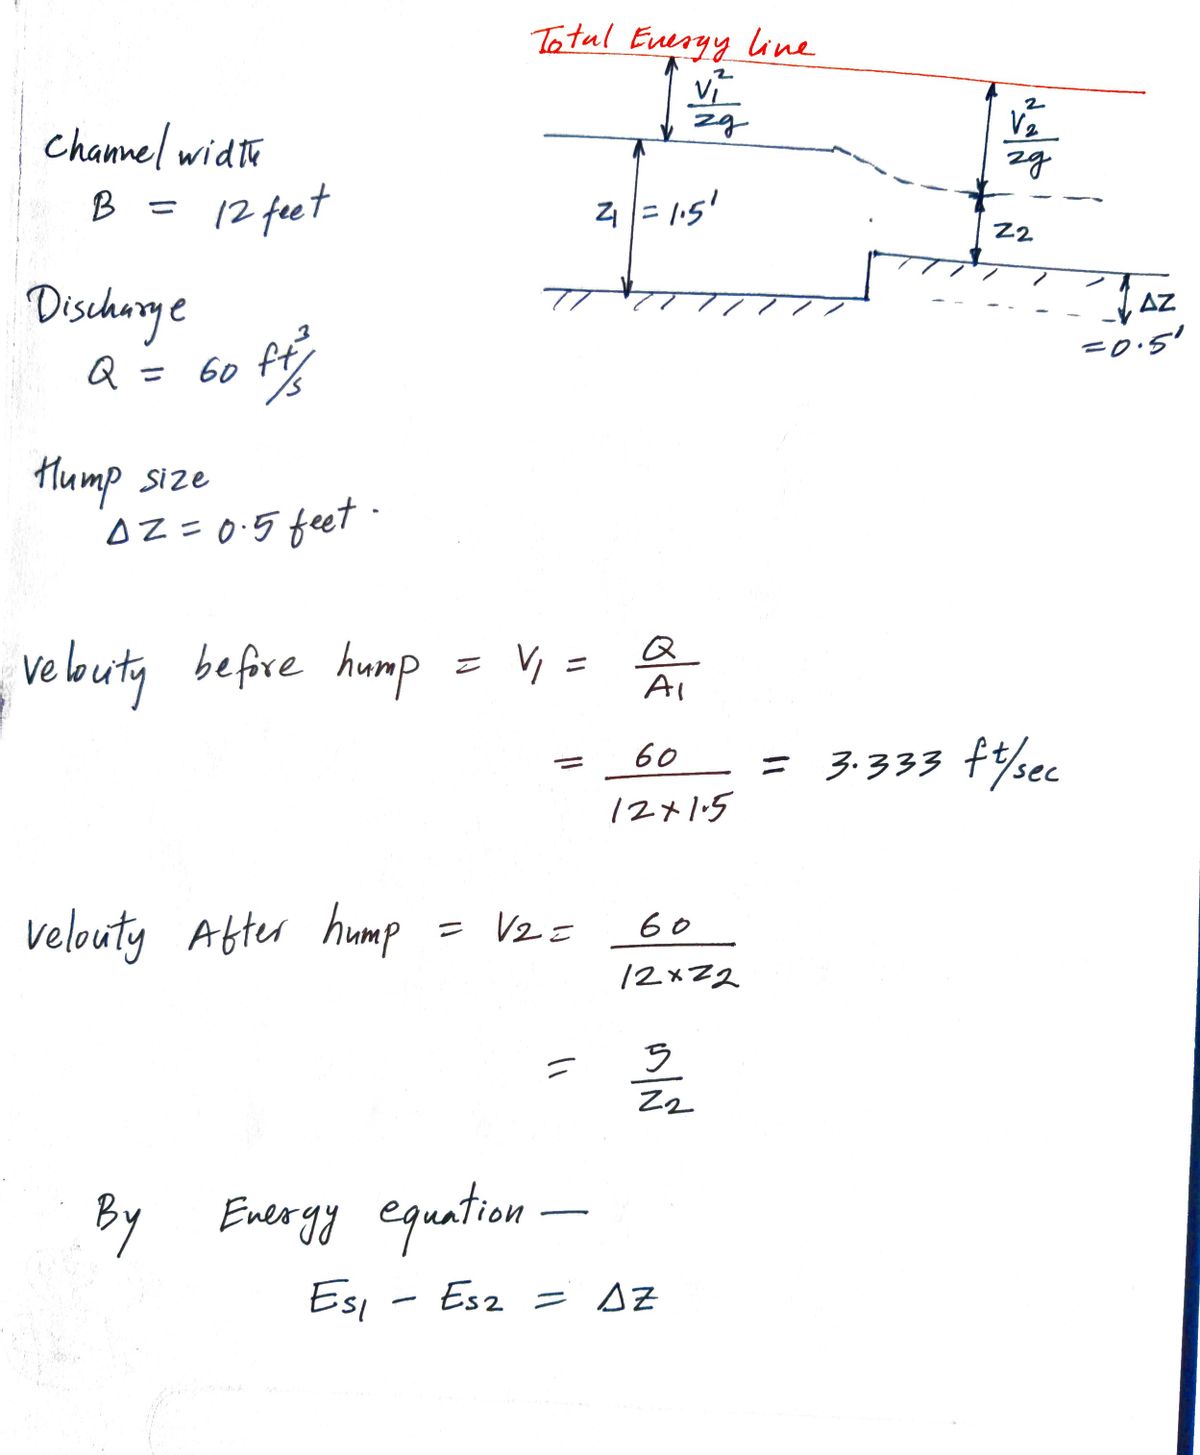 Total Energy line
V₁²/2g
V₂²/2g
Channel width
B = 12 feet
Z₁ = 1.5'
Z2
Discharge
Q = 60 ft³/s
ΔZ
=0.5'
Hump size
ΔZ = 0.5 feet.
Velocity before hump = V₁ = Q/A₁
= 60/12×1.5 = 3.333 ft/sec
Velocity After hump = V2 = 60/12×Z2
= 5/Z2
By Energy equation —
Es₁ - Es2 = ΔZ